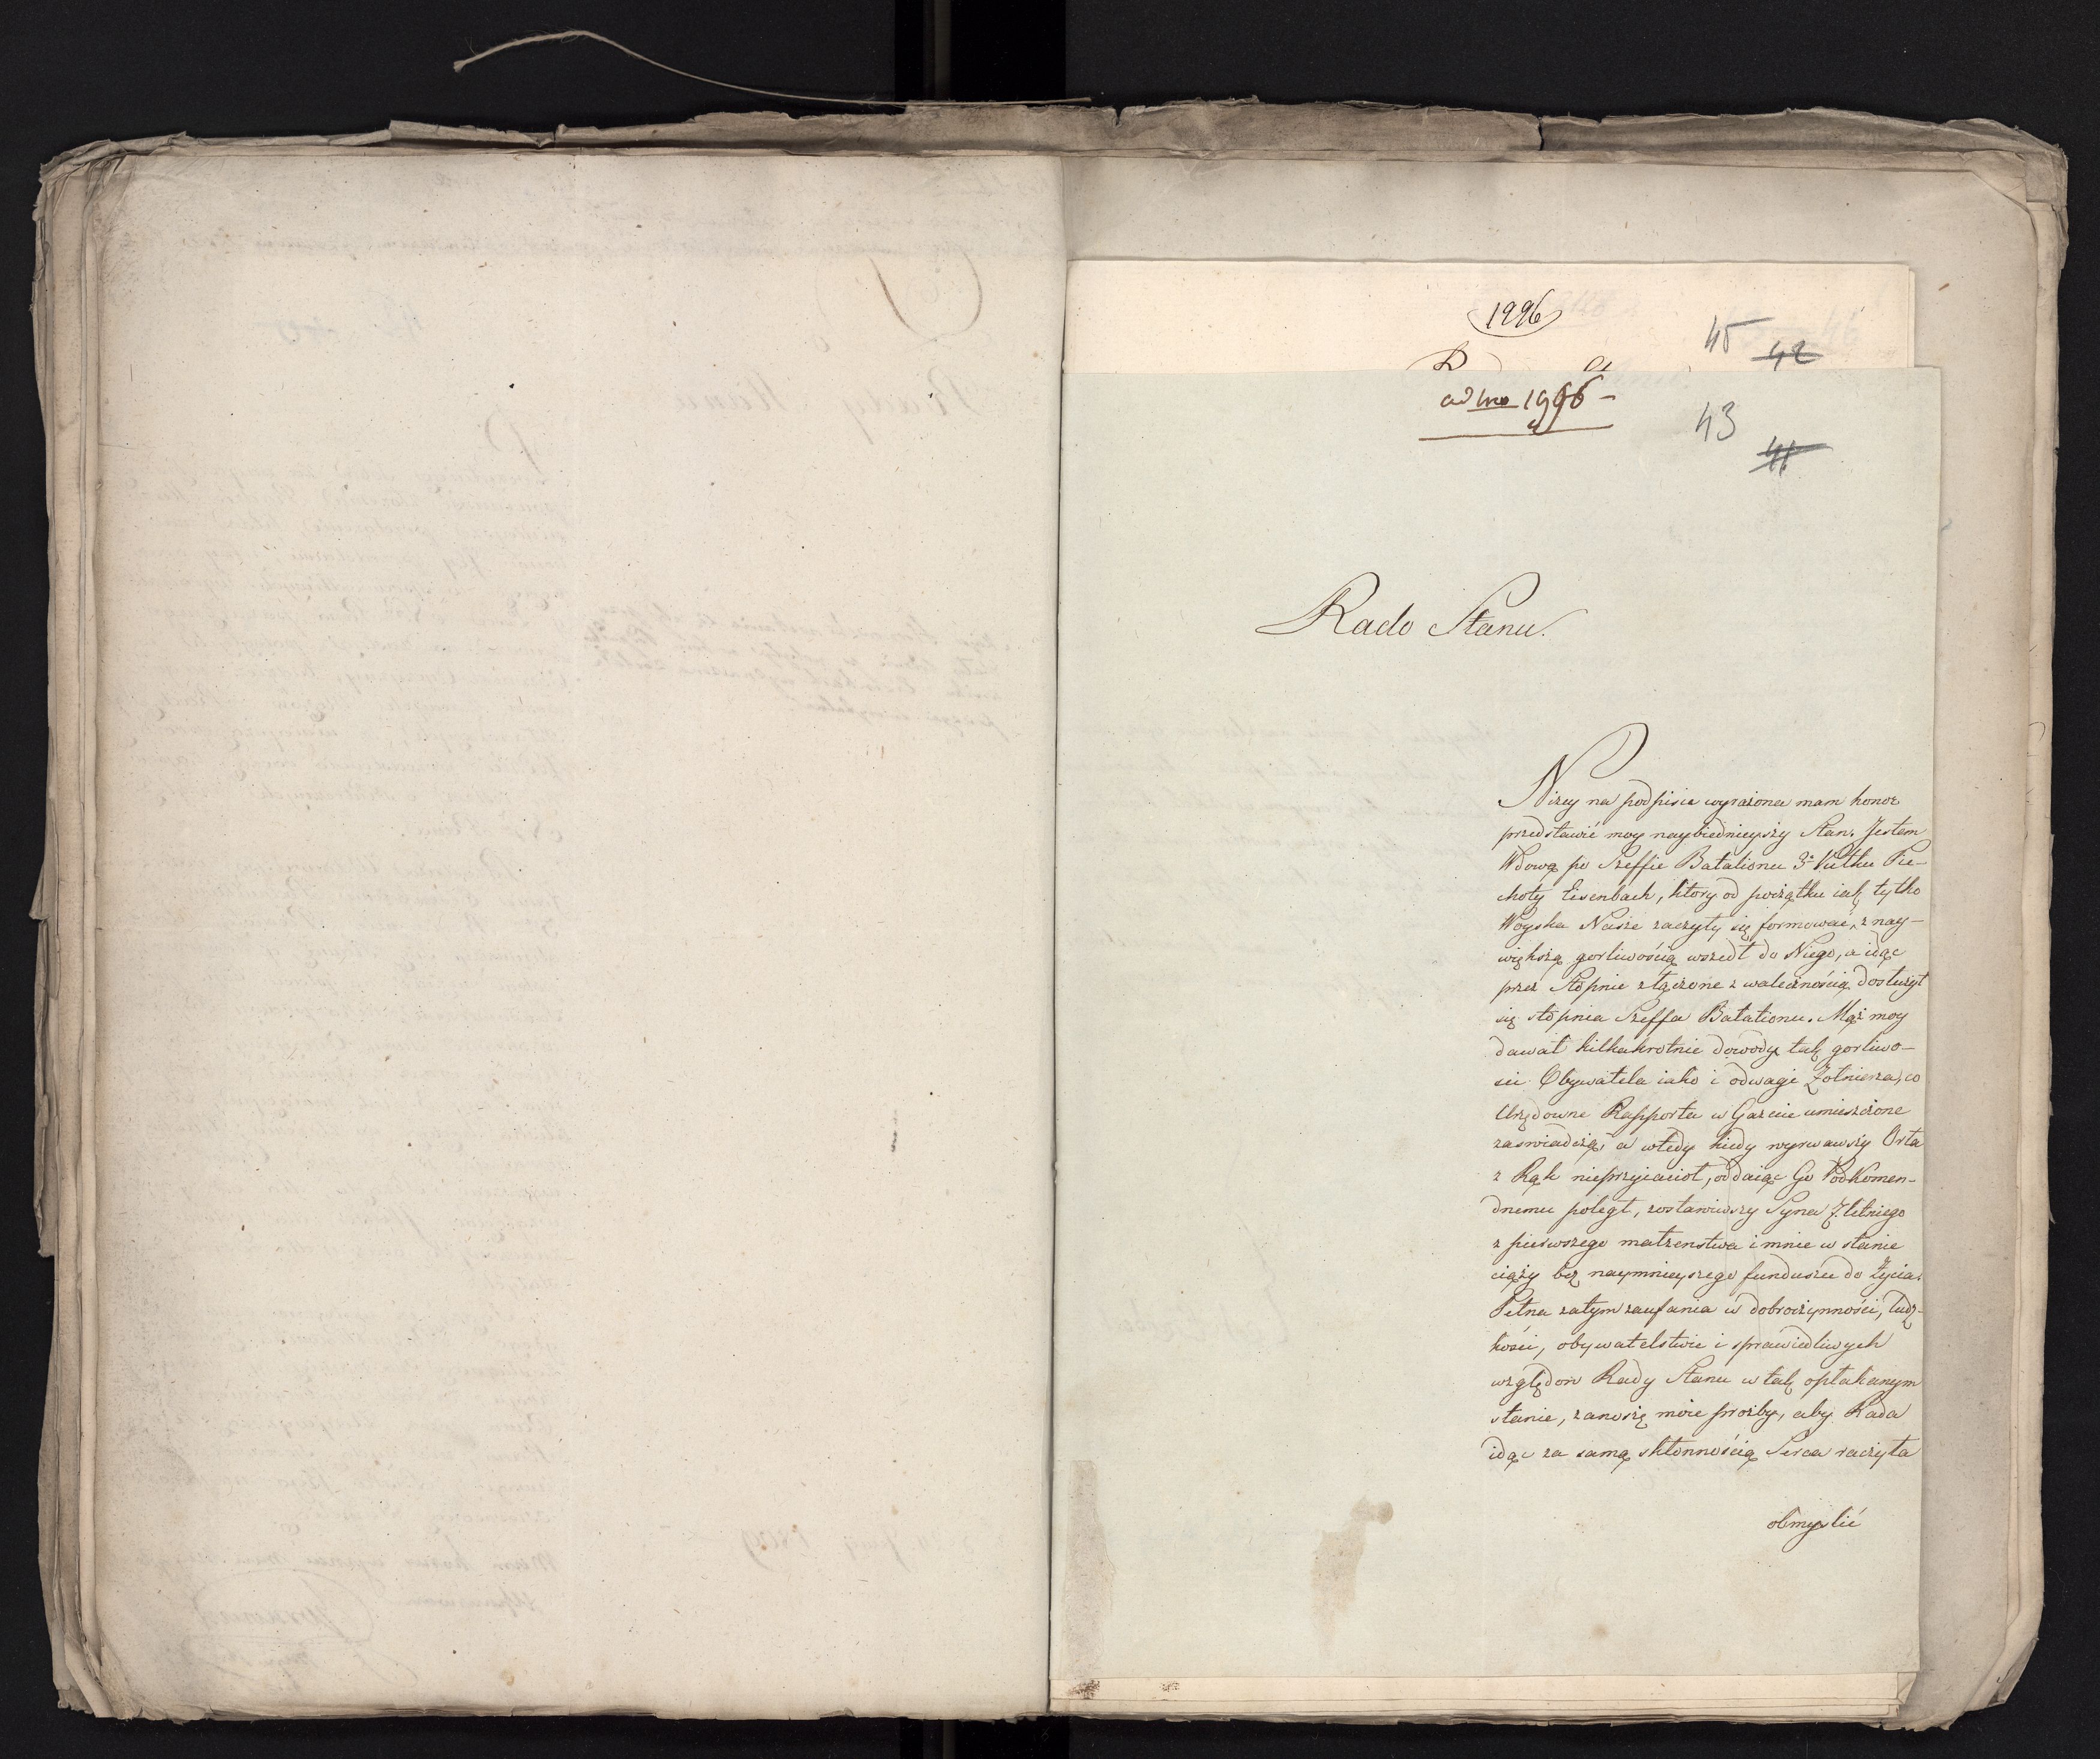 1996
45 42
ad Nro 1996 –
43
41
Rado Stanu.
Niżey na podpisie wyrażona mam honor
przedstawić moy naybiednieyszy Stan. Jestem
Wdową po Szeffie Batalionu 3º Pułku Pie-
choty Eisenbach, ktory od początku iak tylko
Woyska Nasze zaczęły się formować, z nay-
większą gorliwością wszedł do Niego, a idąc
przez Stopnie złączone z walecznością dosłużył
się stopnia Szeffa Batalionu. Mąż moy
dawał kilkakrotnie dowody tak gorliwo-
sci Obywatela iako i odwagi Żołnierza, co
Urzędowne Rapporta w Gazecie umieszczone
zaswiadczą, a wtedy kiedy wyrwawszy Orła
z Rąk nieprzyiaciol, oddaiąc Go Podkomen-
dnemu poległ, zostawiwszy Syna 7. letniego
z pierwszego małżenstwa i mnie w stanie
ciąży bez naymnieyszego funduszu do Życia.
Pełna zatym zaufania w dobroczynności, ludz-
kości, obywatelstwie i sprawiedliwych
względow Rady Stanu w tak opłakanym
stanie, zanoszę moie prozby, aby Rada
idąc za samą skłonnością Serca raczyła
obmyslić